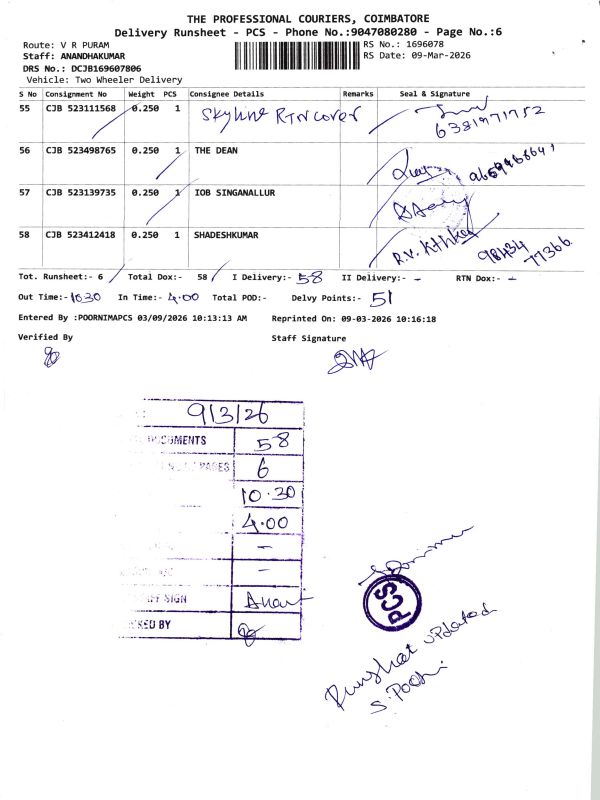 THE PROFESSIONAL COURIERS, COIMBATORE
Delivery Runsheet - PCS - Phone No.:9047080280 - Page No.:6
Route: V R PURAM
RS No.: 1696078
Staff: ANANDHAKUMAR
RS Date: 09-Mar-2026
DRS No.: DCJB169607806
Vehicle: Two Wheeler Delivery
S No Consignment No Weight PCS Consignee Details Remarks Seal & Signature
55 CJB 523111568 0.250 1 Skyline RTN cover
6381971752
56 CJB 523498765 0.250 1 THE DEAN
57 CJB 523139735 0.250 1 IOB SINGANALLUR
58 CJB 523412418 0.250 1 SHADESHKUMAR
98434
77366
Tot. Runsheet:- 6 Total Dox:- 58 I Delivery:- 58 II Delivery:- - RTN Dox:- -
Out Time:- 10.30 In Time:- 4.00 Total POD:- Delvy Points:- 51
Entered By :POORNIMAPCS 03/09/2026 10:13:13 AM Reprinted On: 09-03-2026 10:16:18
Verified By Staff Signature
9/3/26
58
PAGES 6
10.30
4.00
-
-
SIGN
KED BY
PCS
Runsheet updated